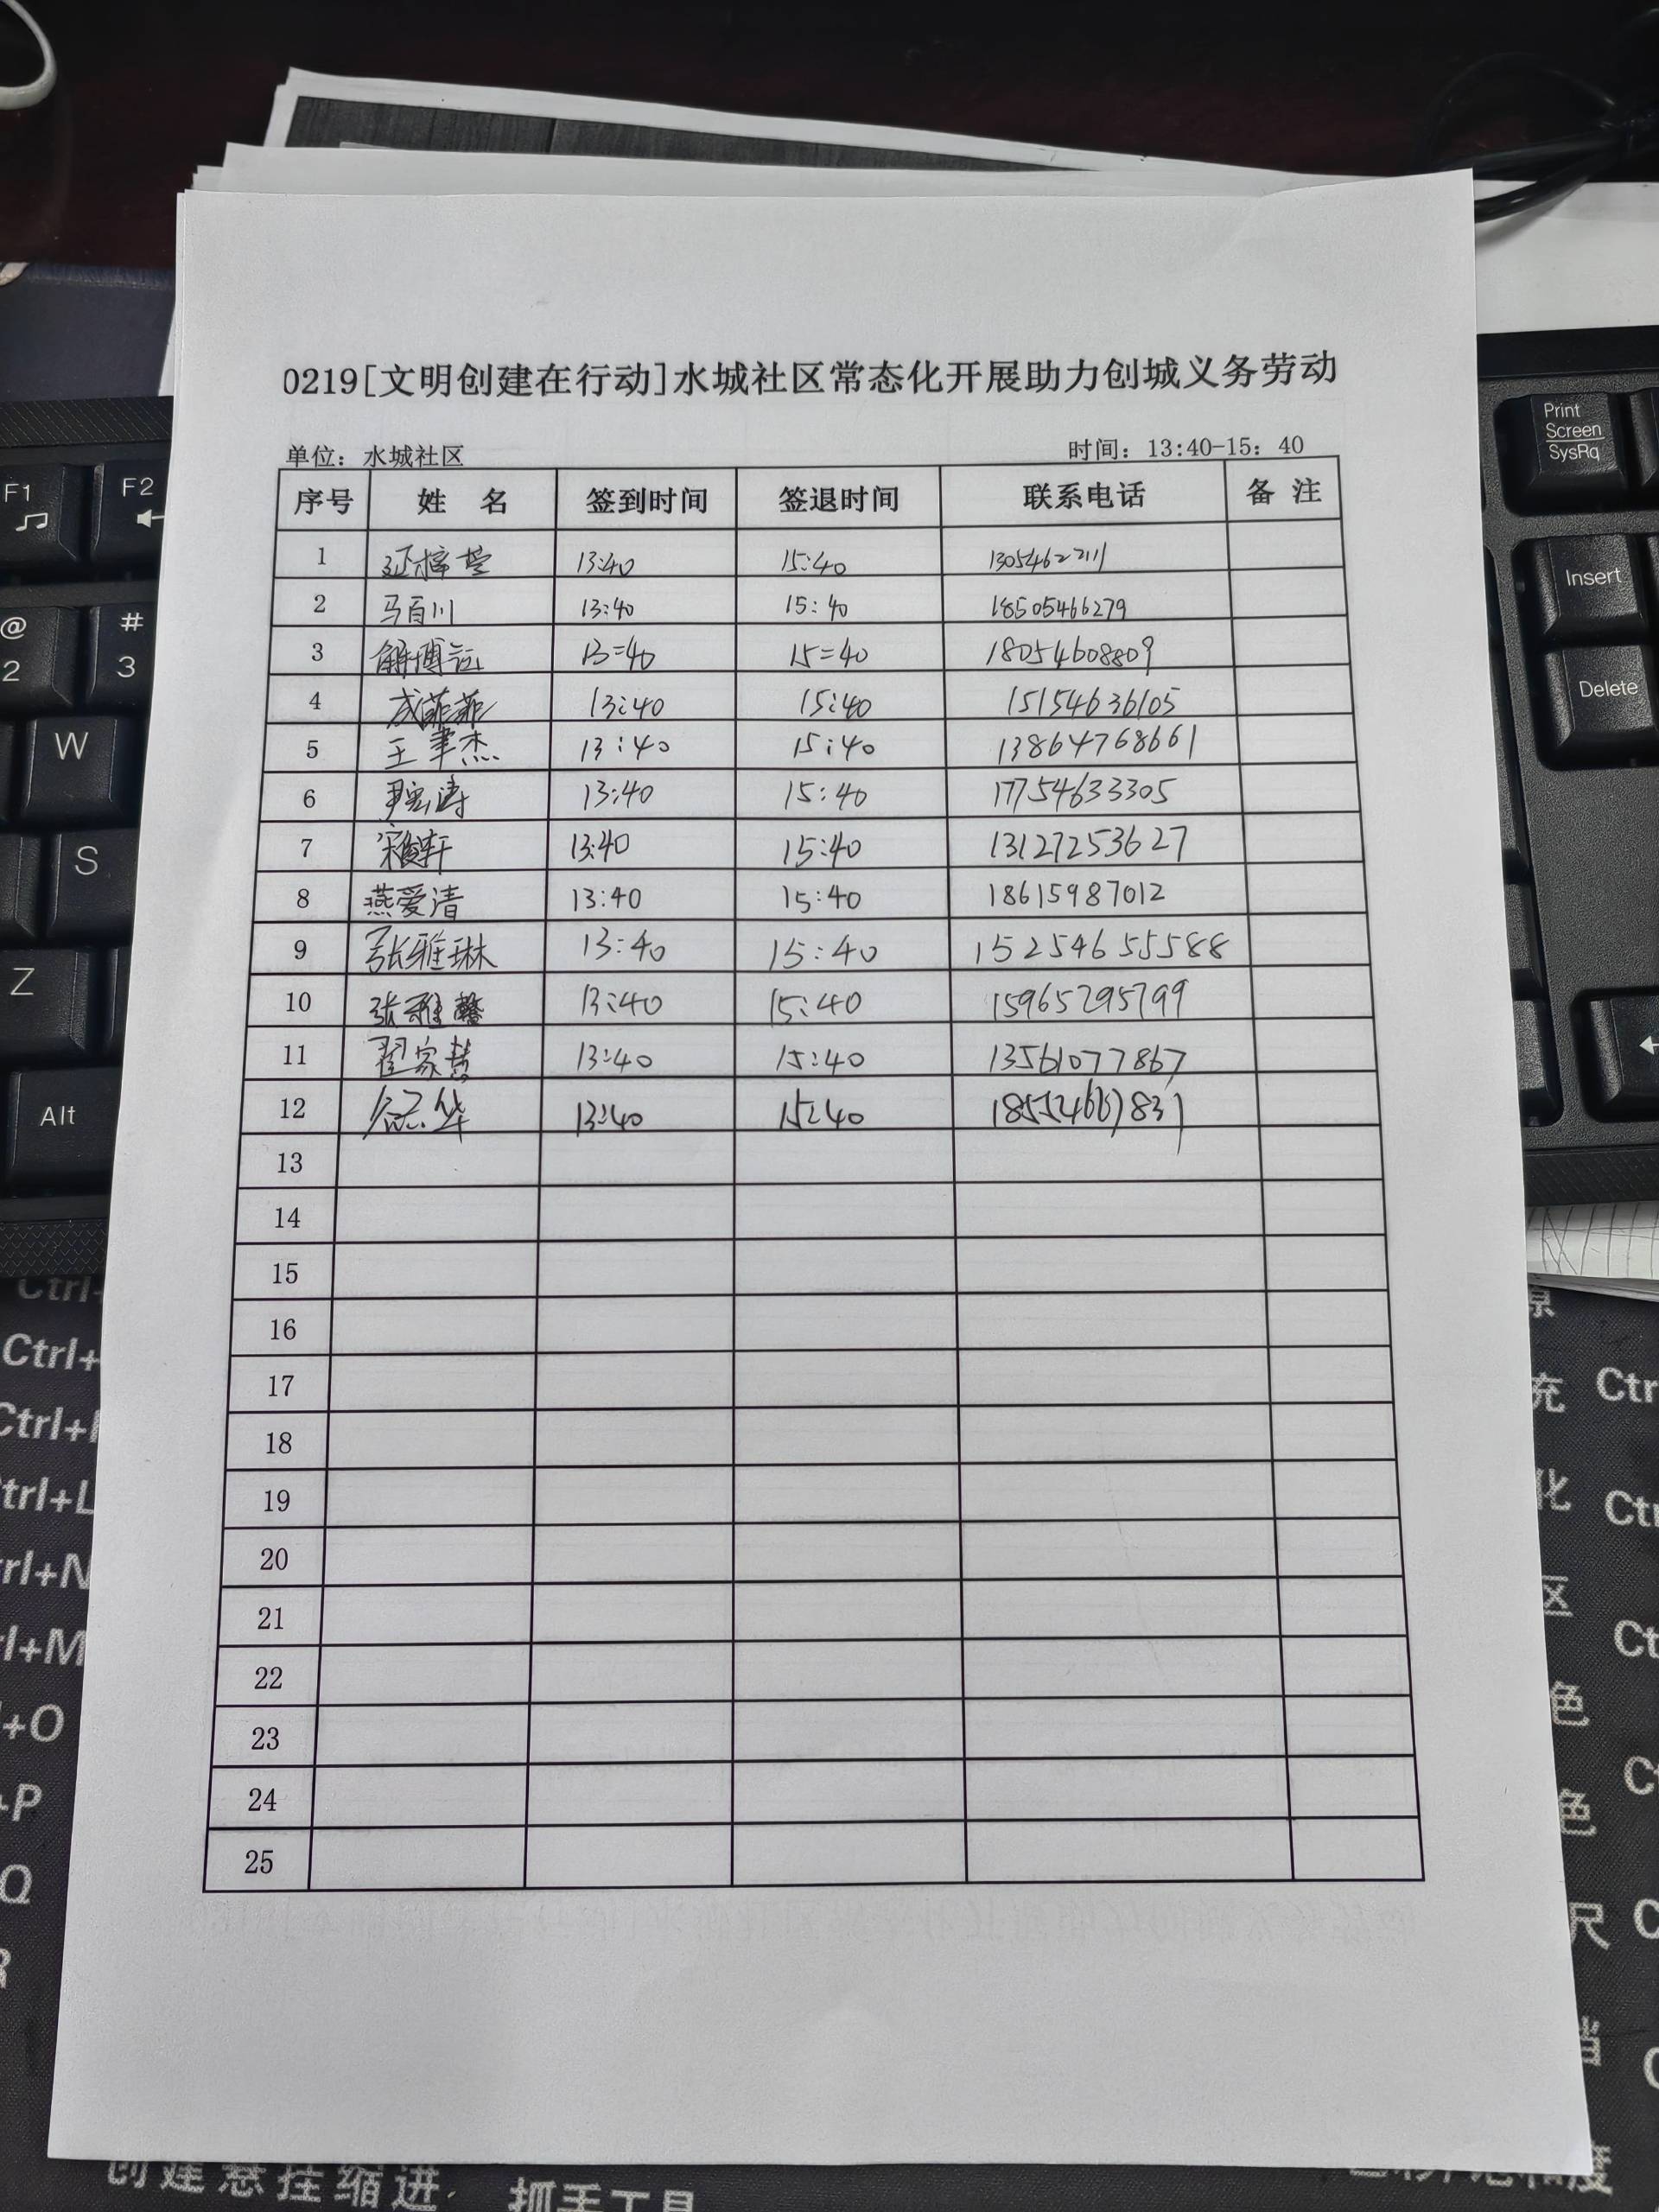 0219[文明创建在行动]水城社区常态化开展助力创城义务劳动
单位：水城社区 时间：13:40-15：40
序号 姓 名 签到时间 签退时间 联系电话 备 注
1 延梓萱 13:40 15:40 13054622111
2 马百川 13:40 15:40 18505466279
3 解博远 13=40 15=40 18054608809
4 成菲菲 13:40 15:40 15154636105
5 王聿杰 13:40 15:40 13864768661
6 13:40 15:40 17754633305
7 13:40 15:40 13127253627
8 燕爱清 13:40 15:40 18615987012
9 张雅琳 13:40 15:40 15254655588
10 张雅馨 13:40 15:40 15965295799
11 翟家慧 13:40 15:40 13561077867
12 13:40 15:40
13
14
15
16
17
18
19
20
21
22
23
24
25
Print
Screen
SysRq
Insert
Delete
F1
F2
@
2
#
3
W
S
Z
Alt
Ctrl+
Ctrl+
trl+L
rl+N
l+M
+O
+P
Q
充
化
区
色
色
尺
Ctr
创建悬挂缩进
抓手工具